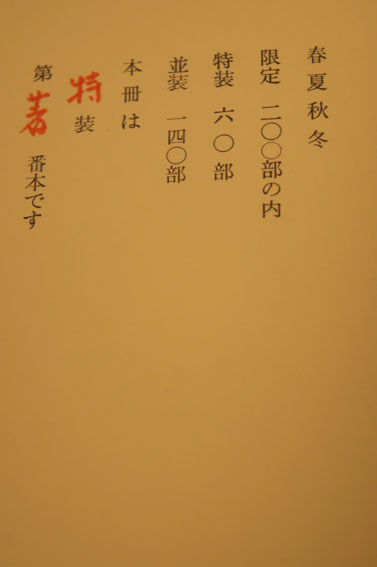 春夏秋冬
限定 二〇〇部の内
特装 六〇部
並装 一四〇部
本冊は
特装
第著番本です